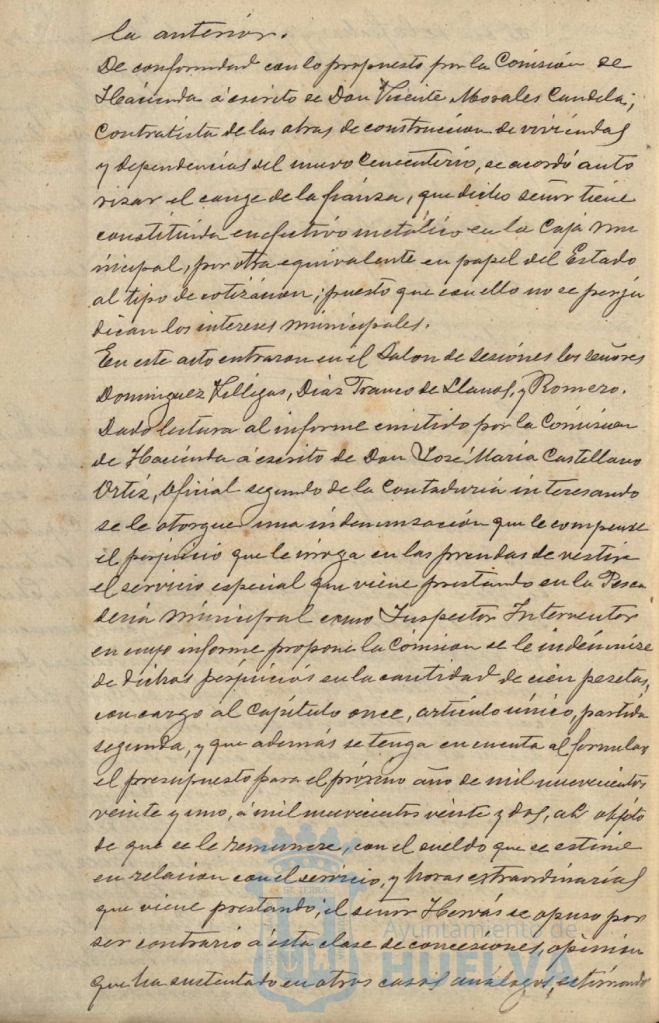 la anterior.
De conformidad con lo propuesto por la Comisión de
Hacienda á escrito de Don Vicente Morales Candela,
Contratista de las obras de construccion de viviendas
y dependencias del nuevo Cementerio, se acordó auto
rizar el cange de la fianza, que dicho señor tiene
constituida en efectivo metálico en la Caja mu
nicipal, por otra equivalente en papel del Estado
al tipo de cotización; puesto que con ello no se perju
dican los intereses municipales.
En este acto entraron en el Salon de sesiones los señores
Dominguez Villegas, Diaz Franco de Llanos, y Romero.
Dado lectura al informe emitido por la Comision
de Hacienda á escrito de Don José María Castellano
Ortiz, Oficial segundo de la Contaduria interesando
se le otorgue una indemnización que le compense
el perjuicio que le irroga en las prendas de vestir
el servicio especial que viene prestando en la Pesca
deria Municipal como Inspector Interventor
en cuyo informe propone la Comision se le indemnize
de dichos perjuicios en la cantidad de cien pesetas,
con cargo al Capítulo once, artículo único, partida
segunda, y que además se tenga en cuenta al formular
el presupuesto para el próximo año de mil nuevecientos
veinte y uno, á mil nuevecientos veinte y dos, al objeto
de que se le remunere, con el sueldo que se estime
en relacion con el servicio, y horas extraordinarias
que viene prestando; el señor Hervás se opuso por
ser contrario á esta clase de concesiones, opinion
que ha sustentado en otros casos análogos, estimando
Ayuntamiento de
HUELVA